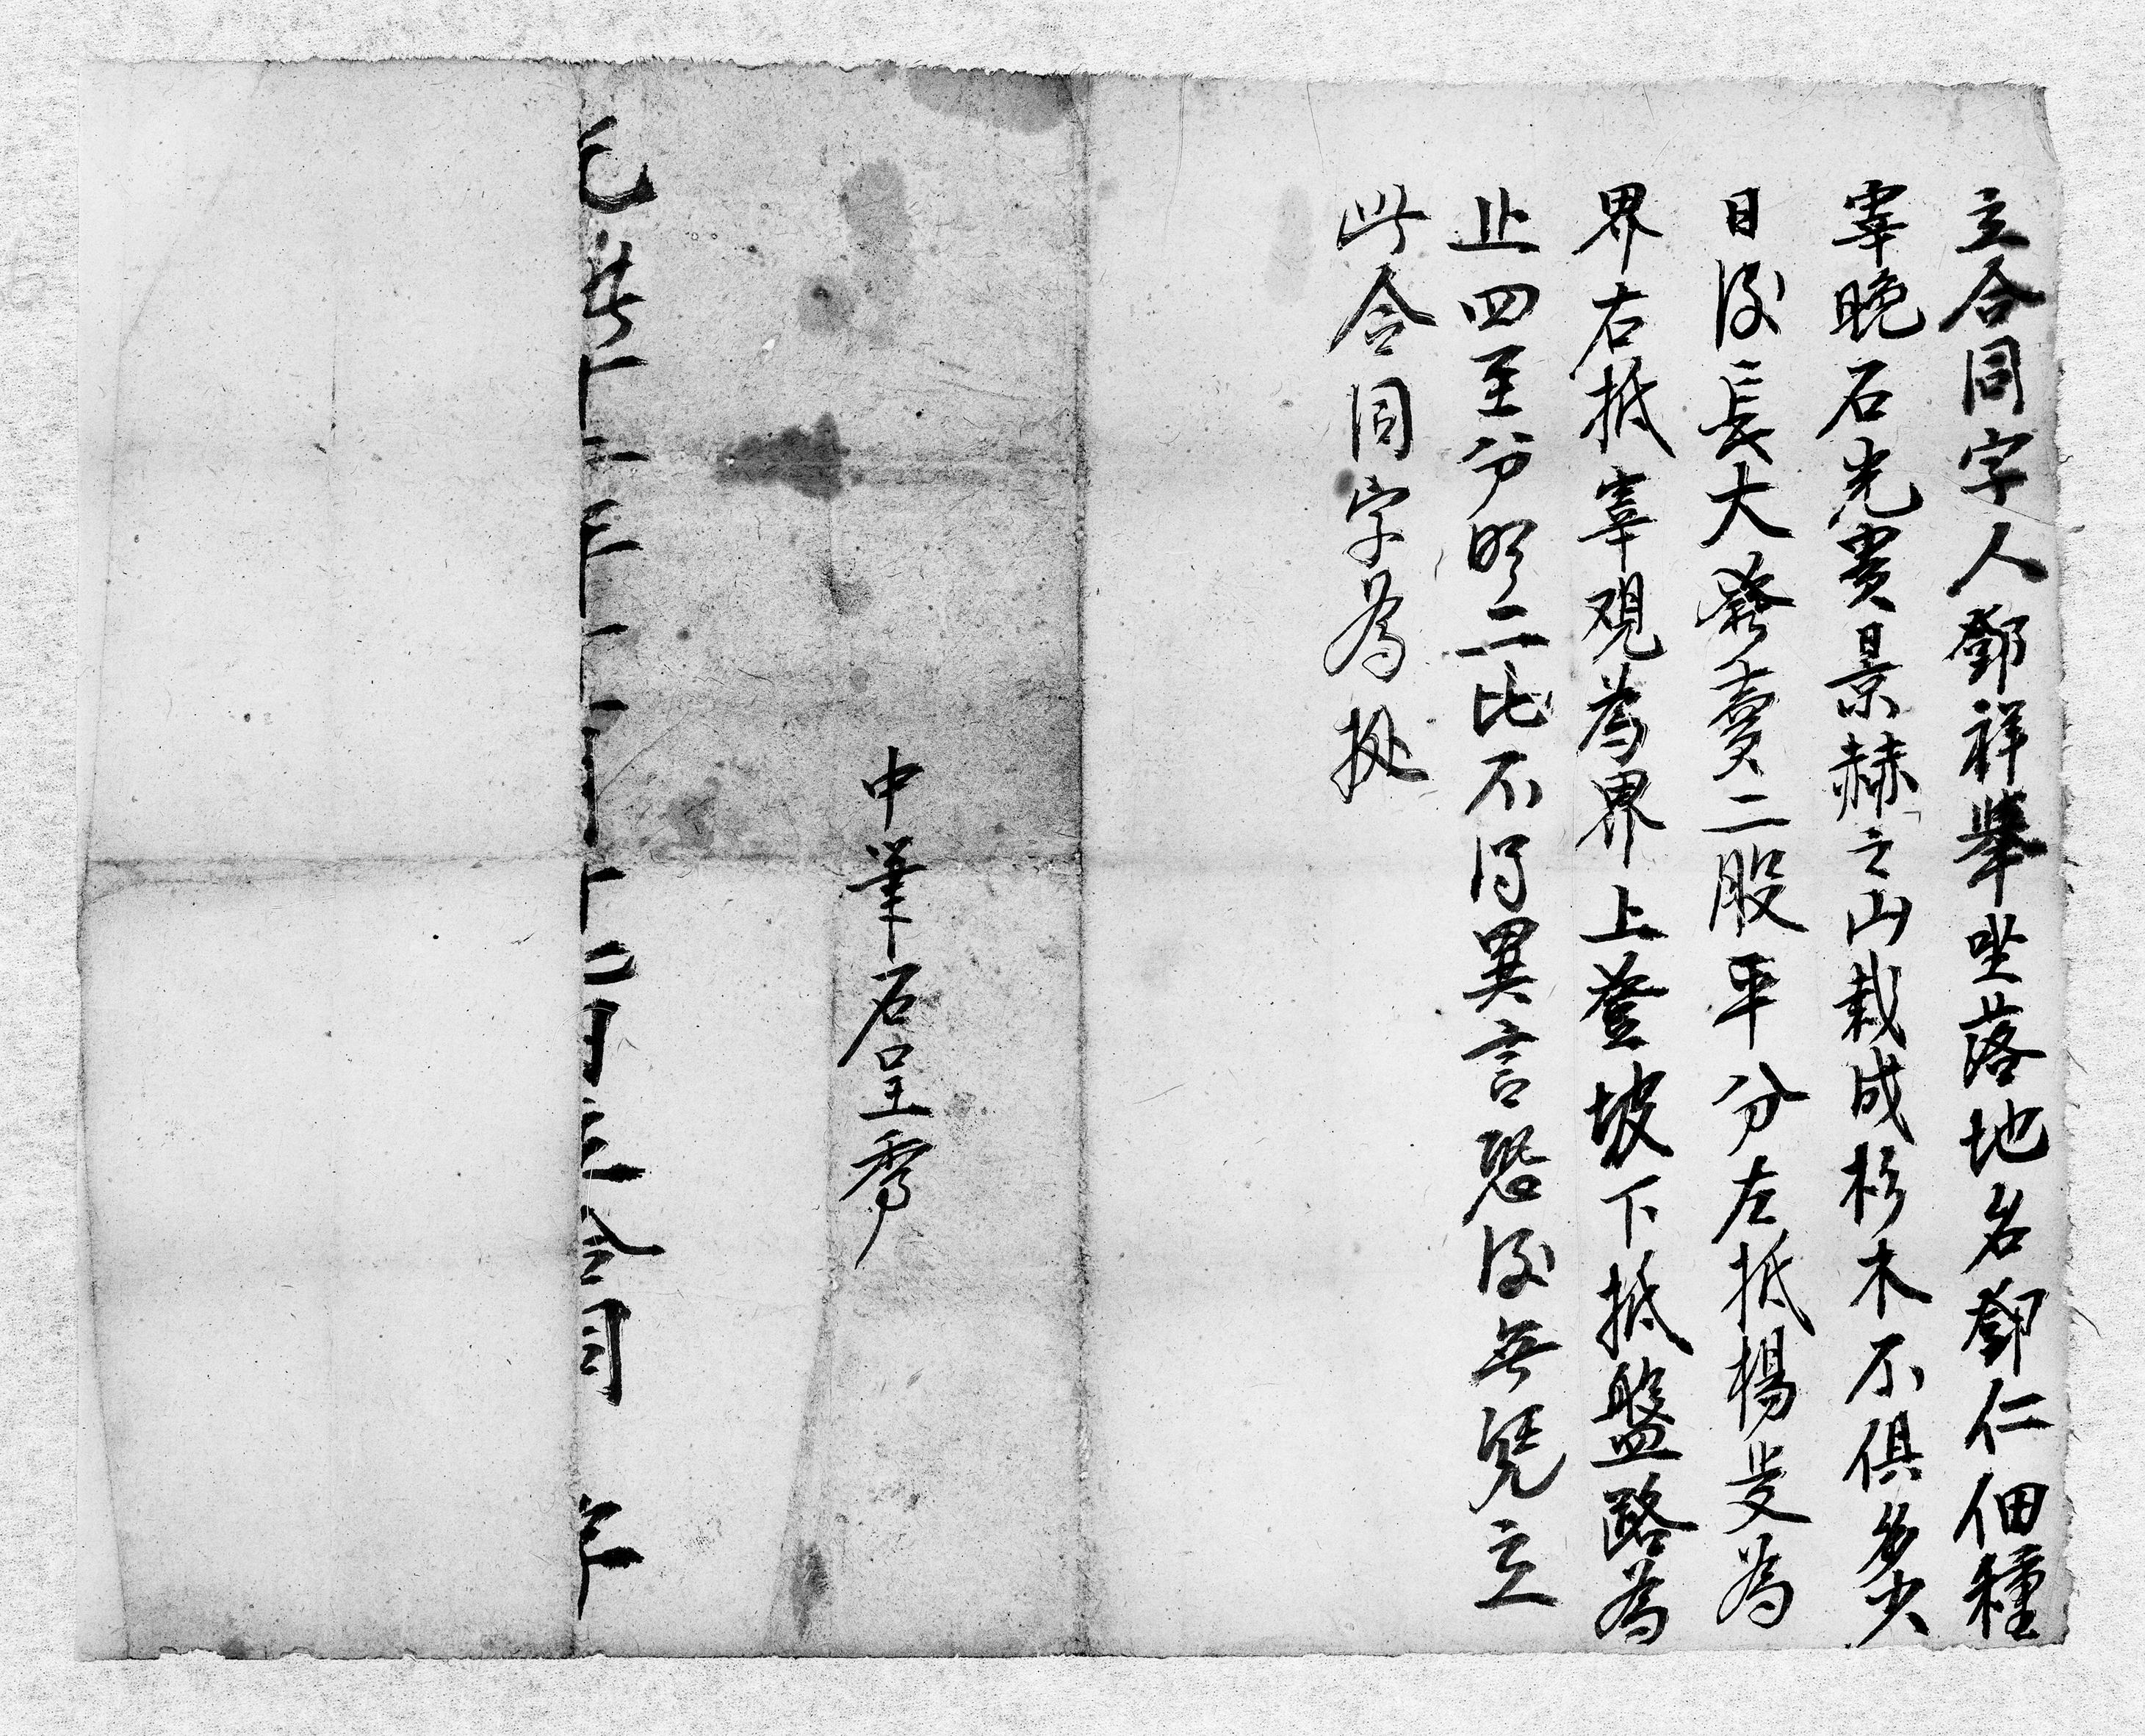 立合同字人鄧祥舉坐落地名鄧仁佃種
宰晚石光貴景赫之山栽成杉木不俱多少
日後長大發賣二股平分左抵楊旻為
界右抵宰观為界上登坡下抵盤路為
止四至分明二比不得異言恐後無凭立
此合同字為挋
中筆石呈秀
光緒十二年十一月十四日立合同